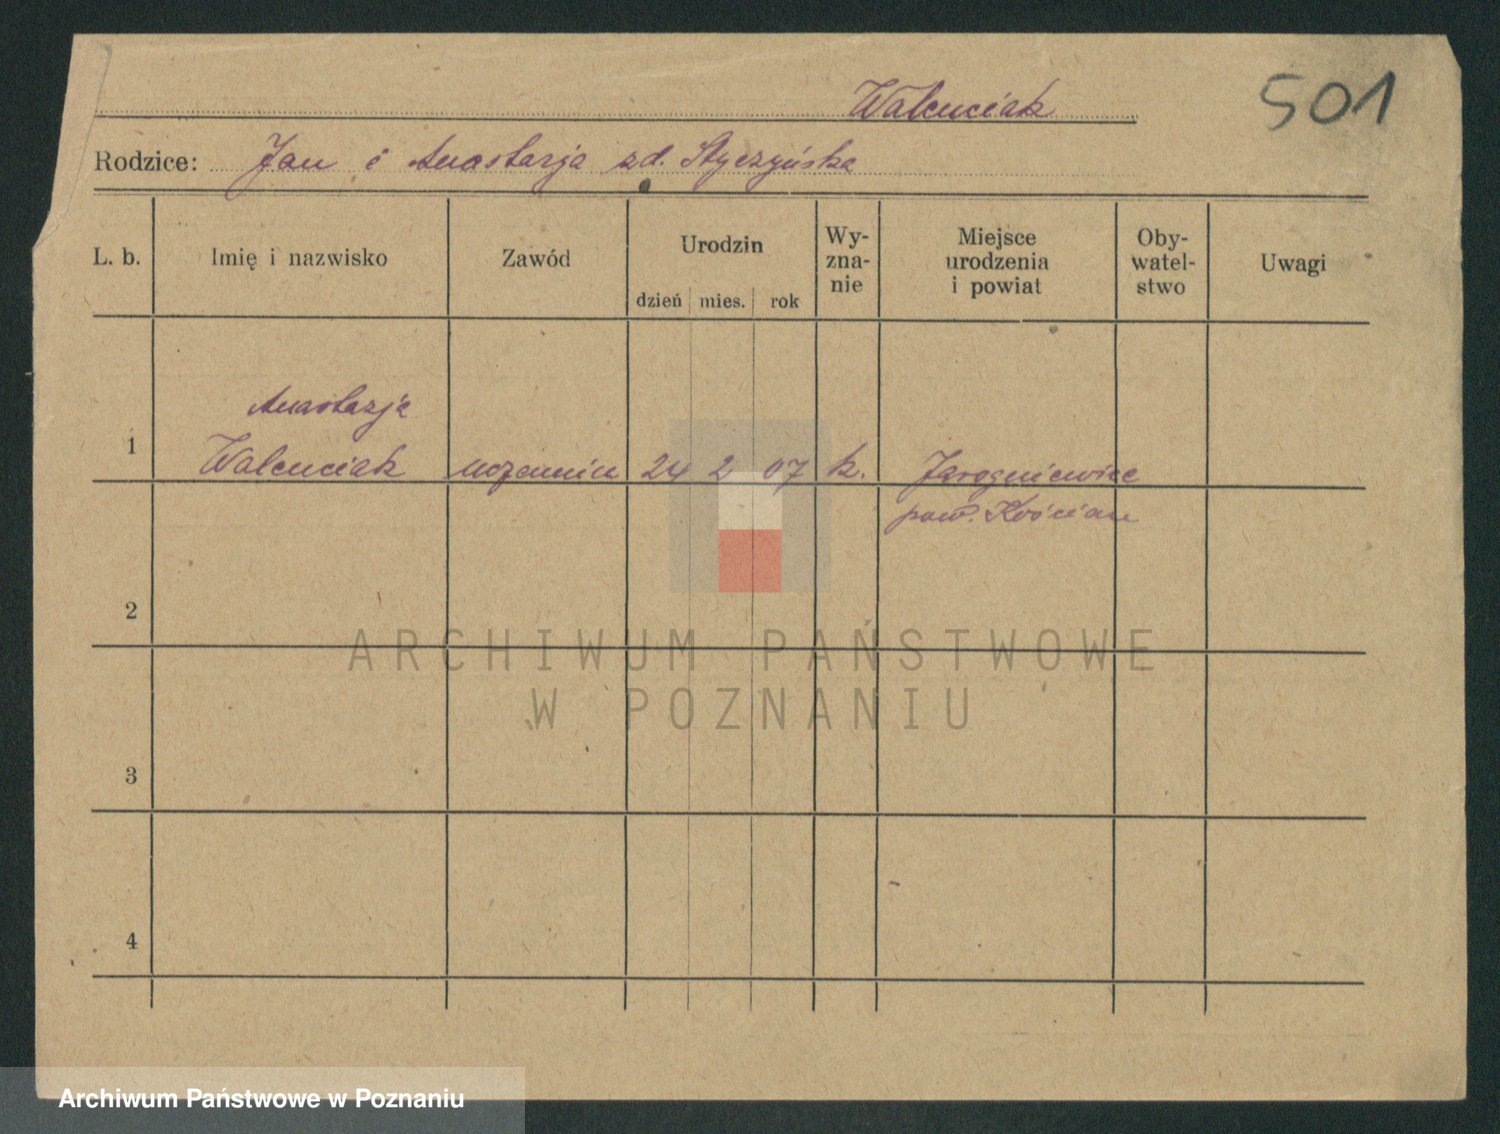 Walenciak
501
Rodzice: Jan i Anastazja zd. Styczyńska
L. b.
Imię i nazwisko
Zawód
Urodzin
dzień mies. rok
Wy-
zna-
nie
Miejsce
urodzenia
i powiat
Oby-
watel-
stwo
Uwagi
Anastazja
1 Walenciak uczennica 24 2 07 k. Jarogniewice
pow. Kościan
2
3
4
ARCHIWUM PAŃSTWOWE
W POZNANIU
Archiwum Państwowe w Poznaniu